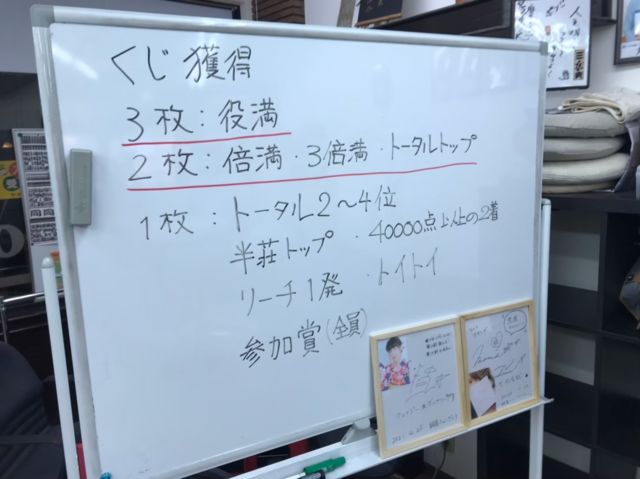 くじ獲得
3枚：役満
2枚：倍満・3倍満・トータルトップ
1枚：トータル2〜4位
半荘トップ・40000点以上の2着
リーチ1発・トイトイ
参加賞(全員)